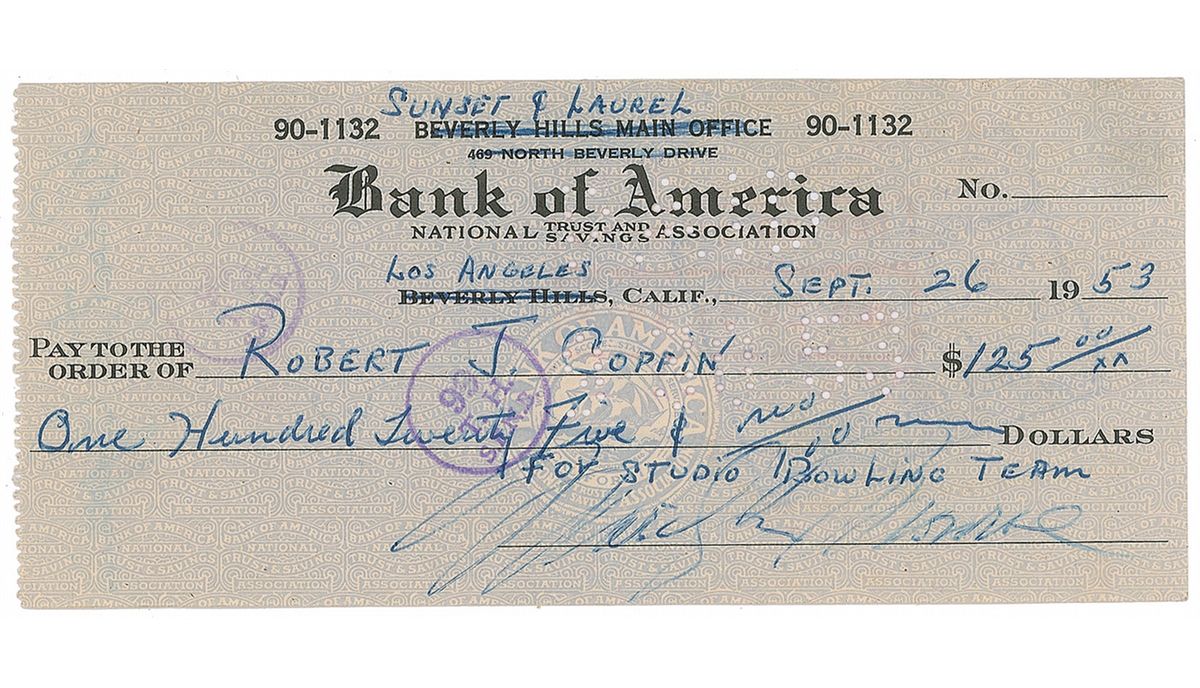 SUNSET & LAUREL
90-1132 BEVERLY HILLS MAIN OFFICE 90-1132
469 NORTH BEVERLY DRIVE
Bank of America No.
NATIONAL TRUST AND SAVINGS ASSOCIATION
LOS ANGELES
BEVERLY HILLS, CALIF., SEPT. 26 1953
PAY TO THE ORDER OF ROBERT J. COFFIN $125 00/xx
One Hundred Twenty Five & no/00 DOLLARS
FOR STUDIO BOWLING TEAM